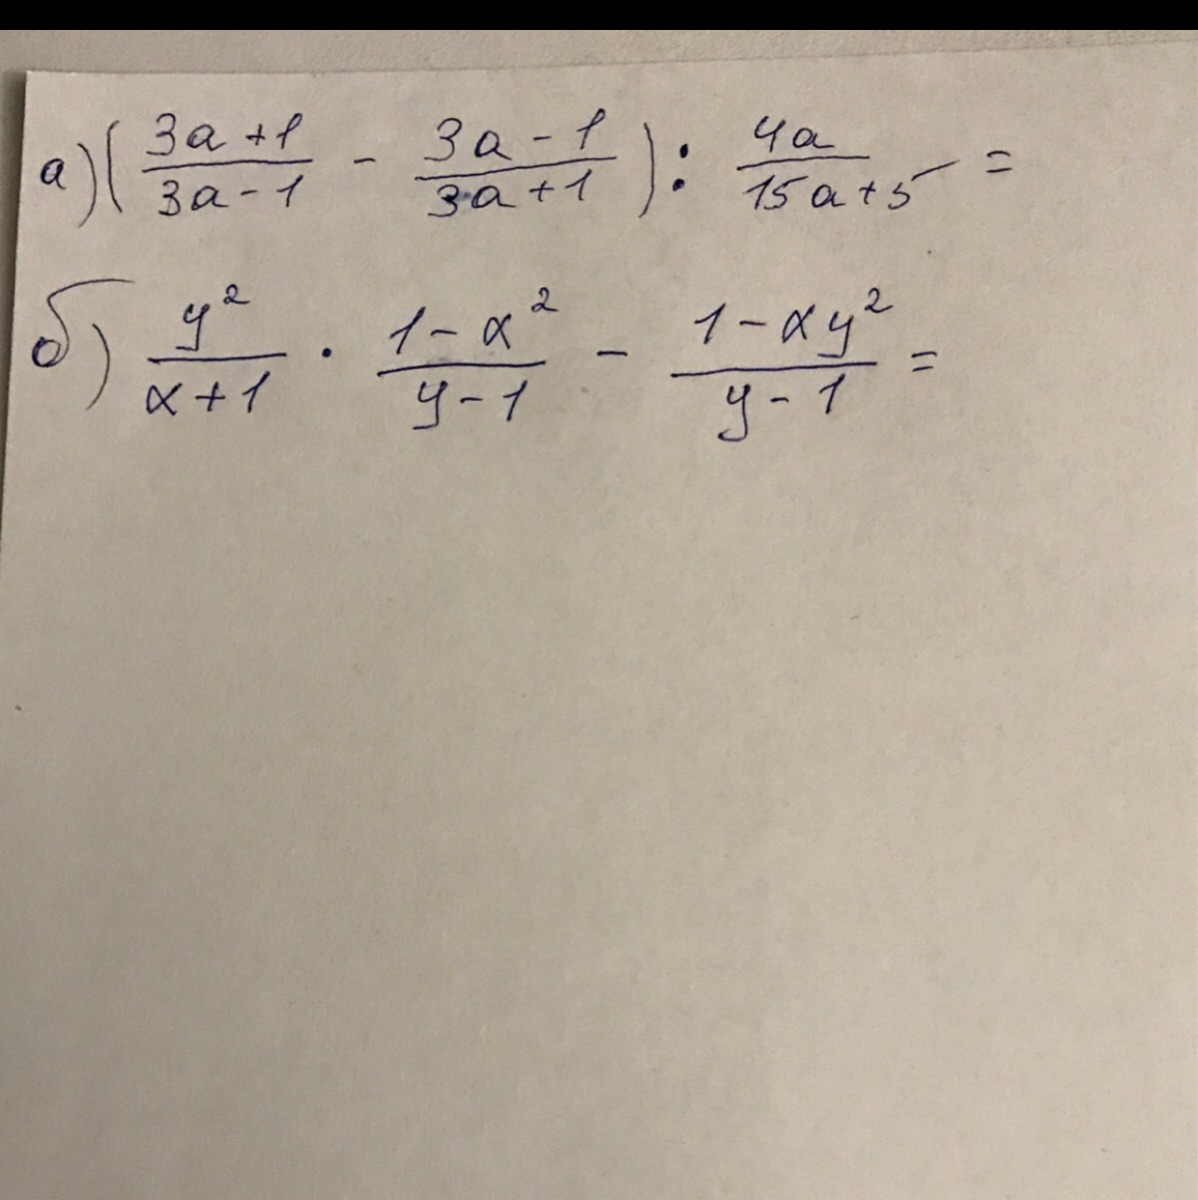 а) ( (3a+1)/(3a-1) - (3a-1)/(3a+1) ) : 4a/(15a+5) =
б) y²/(x+1) · (1-x²)/(y-1) - (1-xy²)/(y-1) =